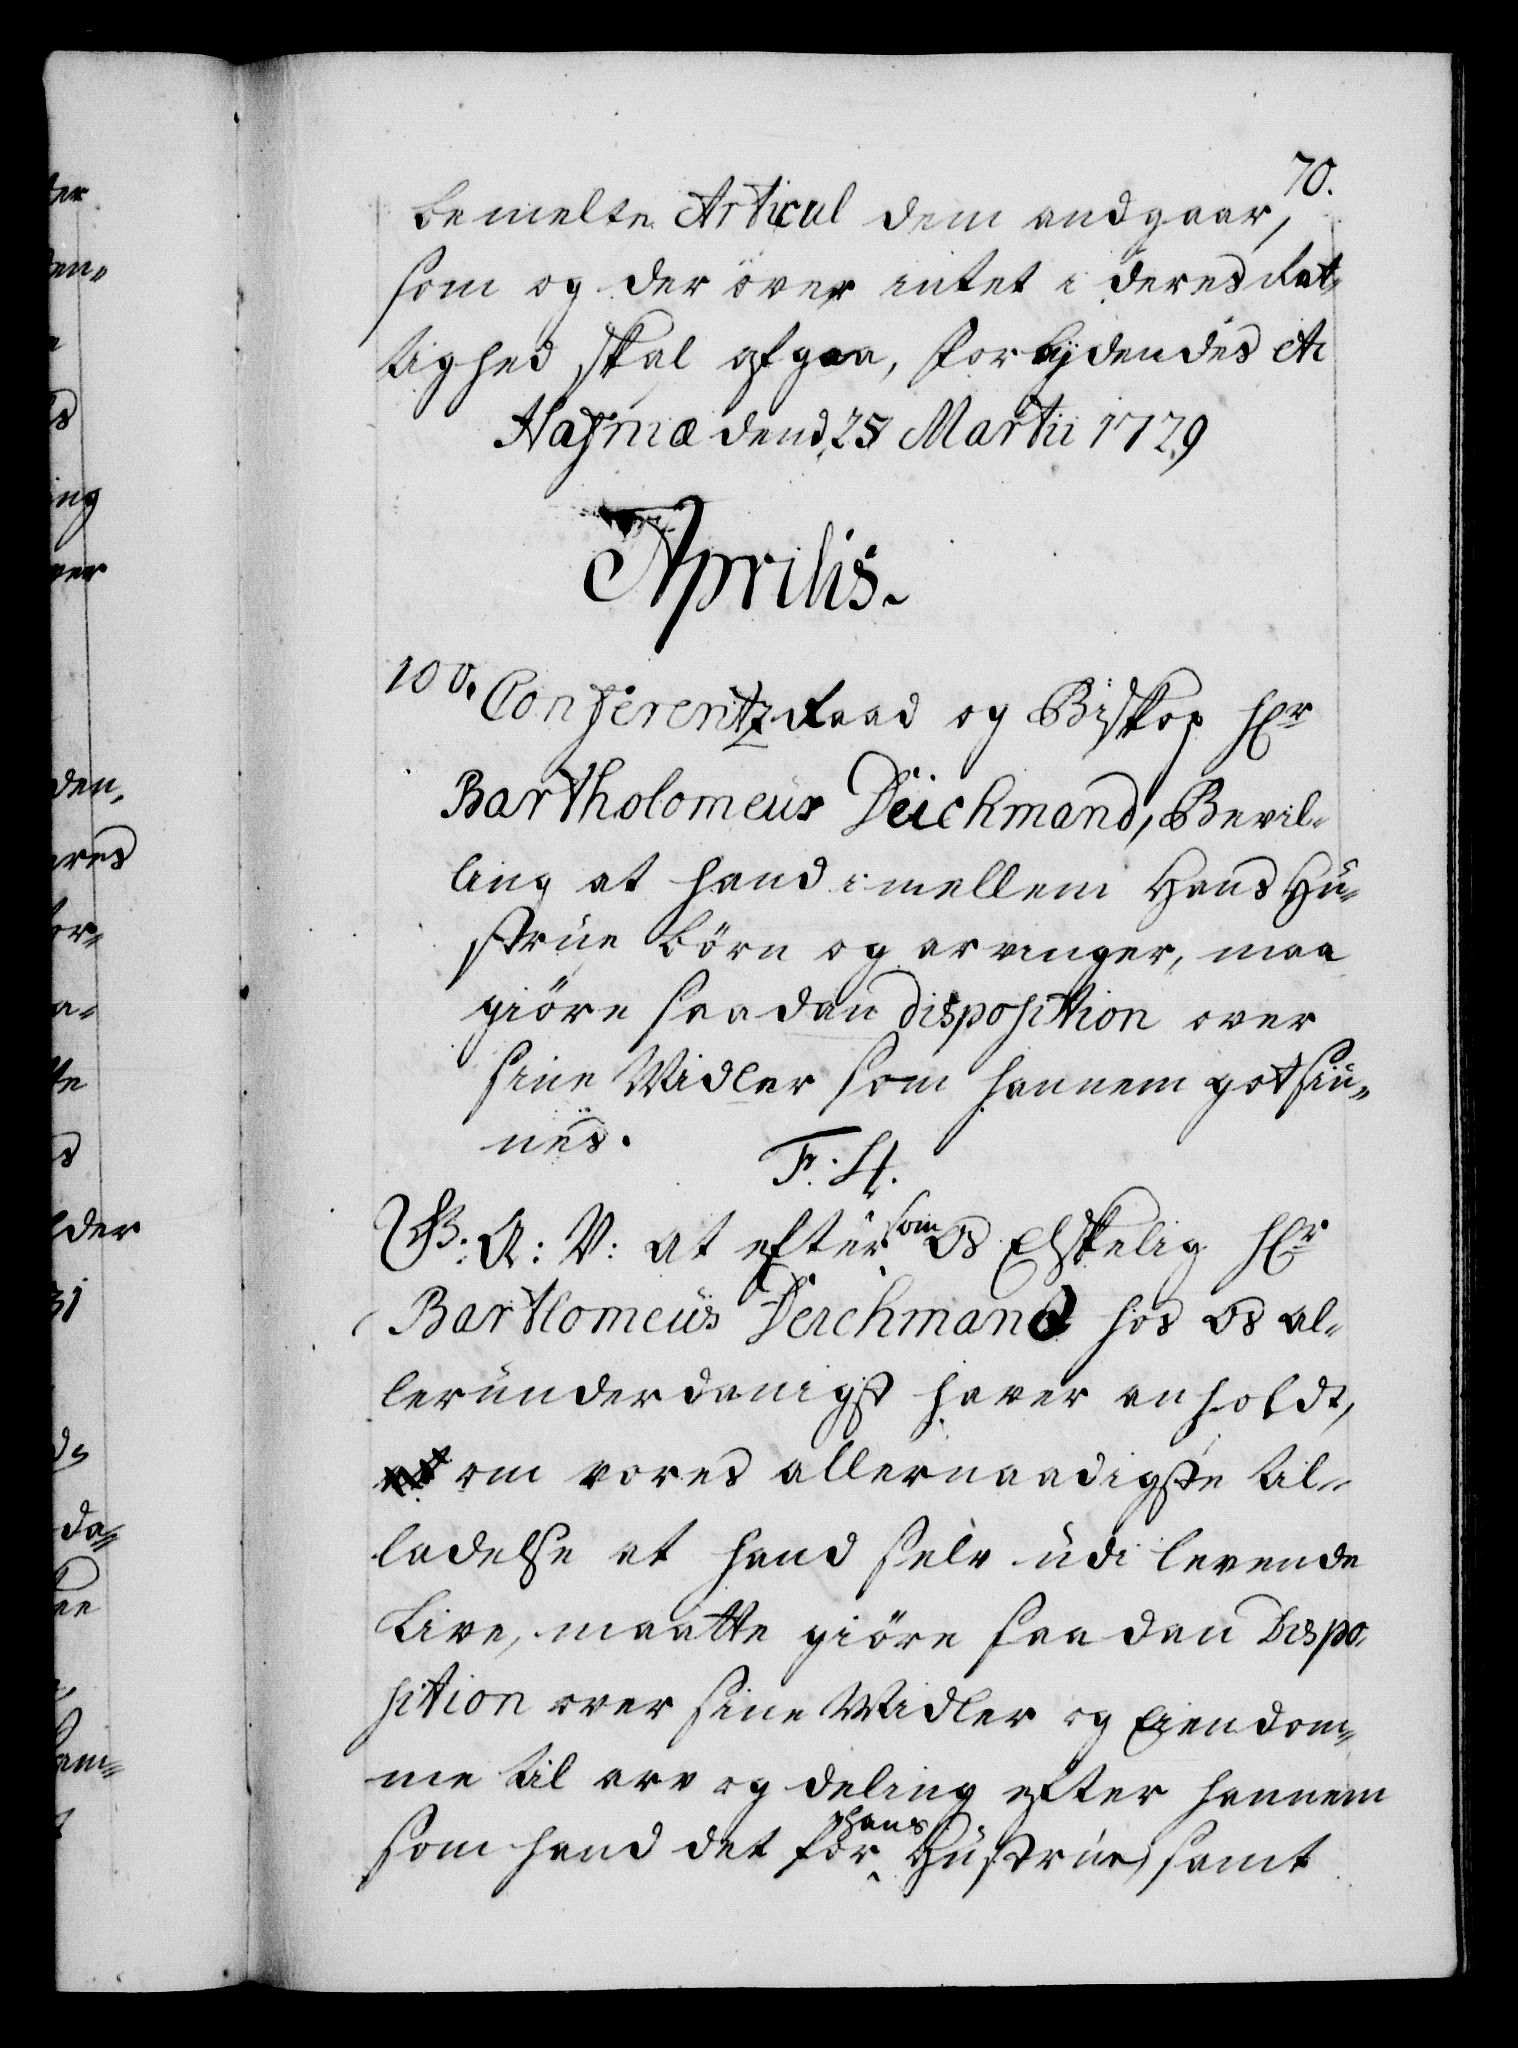 70.
bemelte Articul dem andgaar,
som og der över intet i deres Ret-
tighed skal afgaa, Forbydendes etc
Hafniæ dend. 25 Martii 1729
Aprilis.
100. Conferentz Raad og Biskop Hr
Bartholomeus Deichmand, Bevil-
ling at hand imellem Hans Hu-
strue börn og arvinger, maa
giöre saadan disposition over
sine Midler som hannem got siu-
nes.
F. 4.
G. A: V: at efter som Os Elskelig Hr
Bartlomeus Deichmand hos Os al-
lerunderdanigst haver anholdt,
om vores allernaadigste til-
ladelse at hand selv udi levende
Live, maatte giöre saadan Dispo-
sition over sine Midler og Eiendom-
me til arv og deling efter hannem
som hand det for hans Hustrue, samt
ter
den,
eres
or-
a-
lder
31
da-
ing
ver